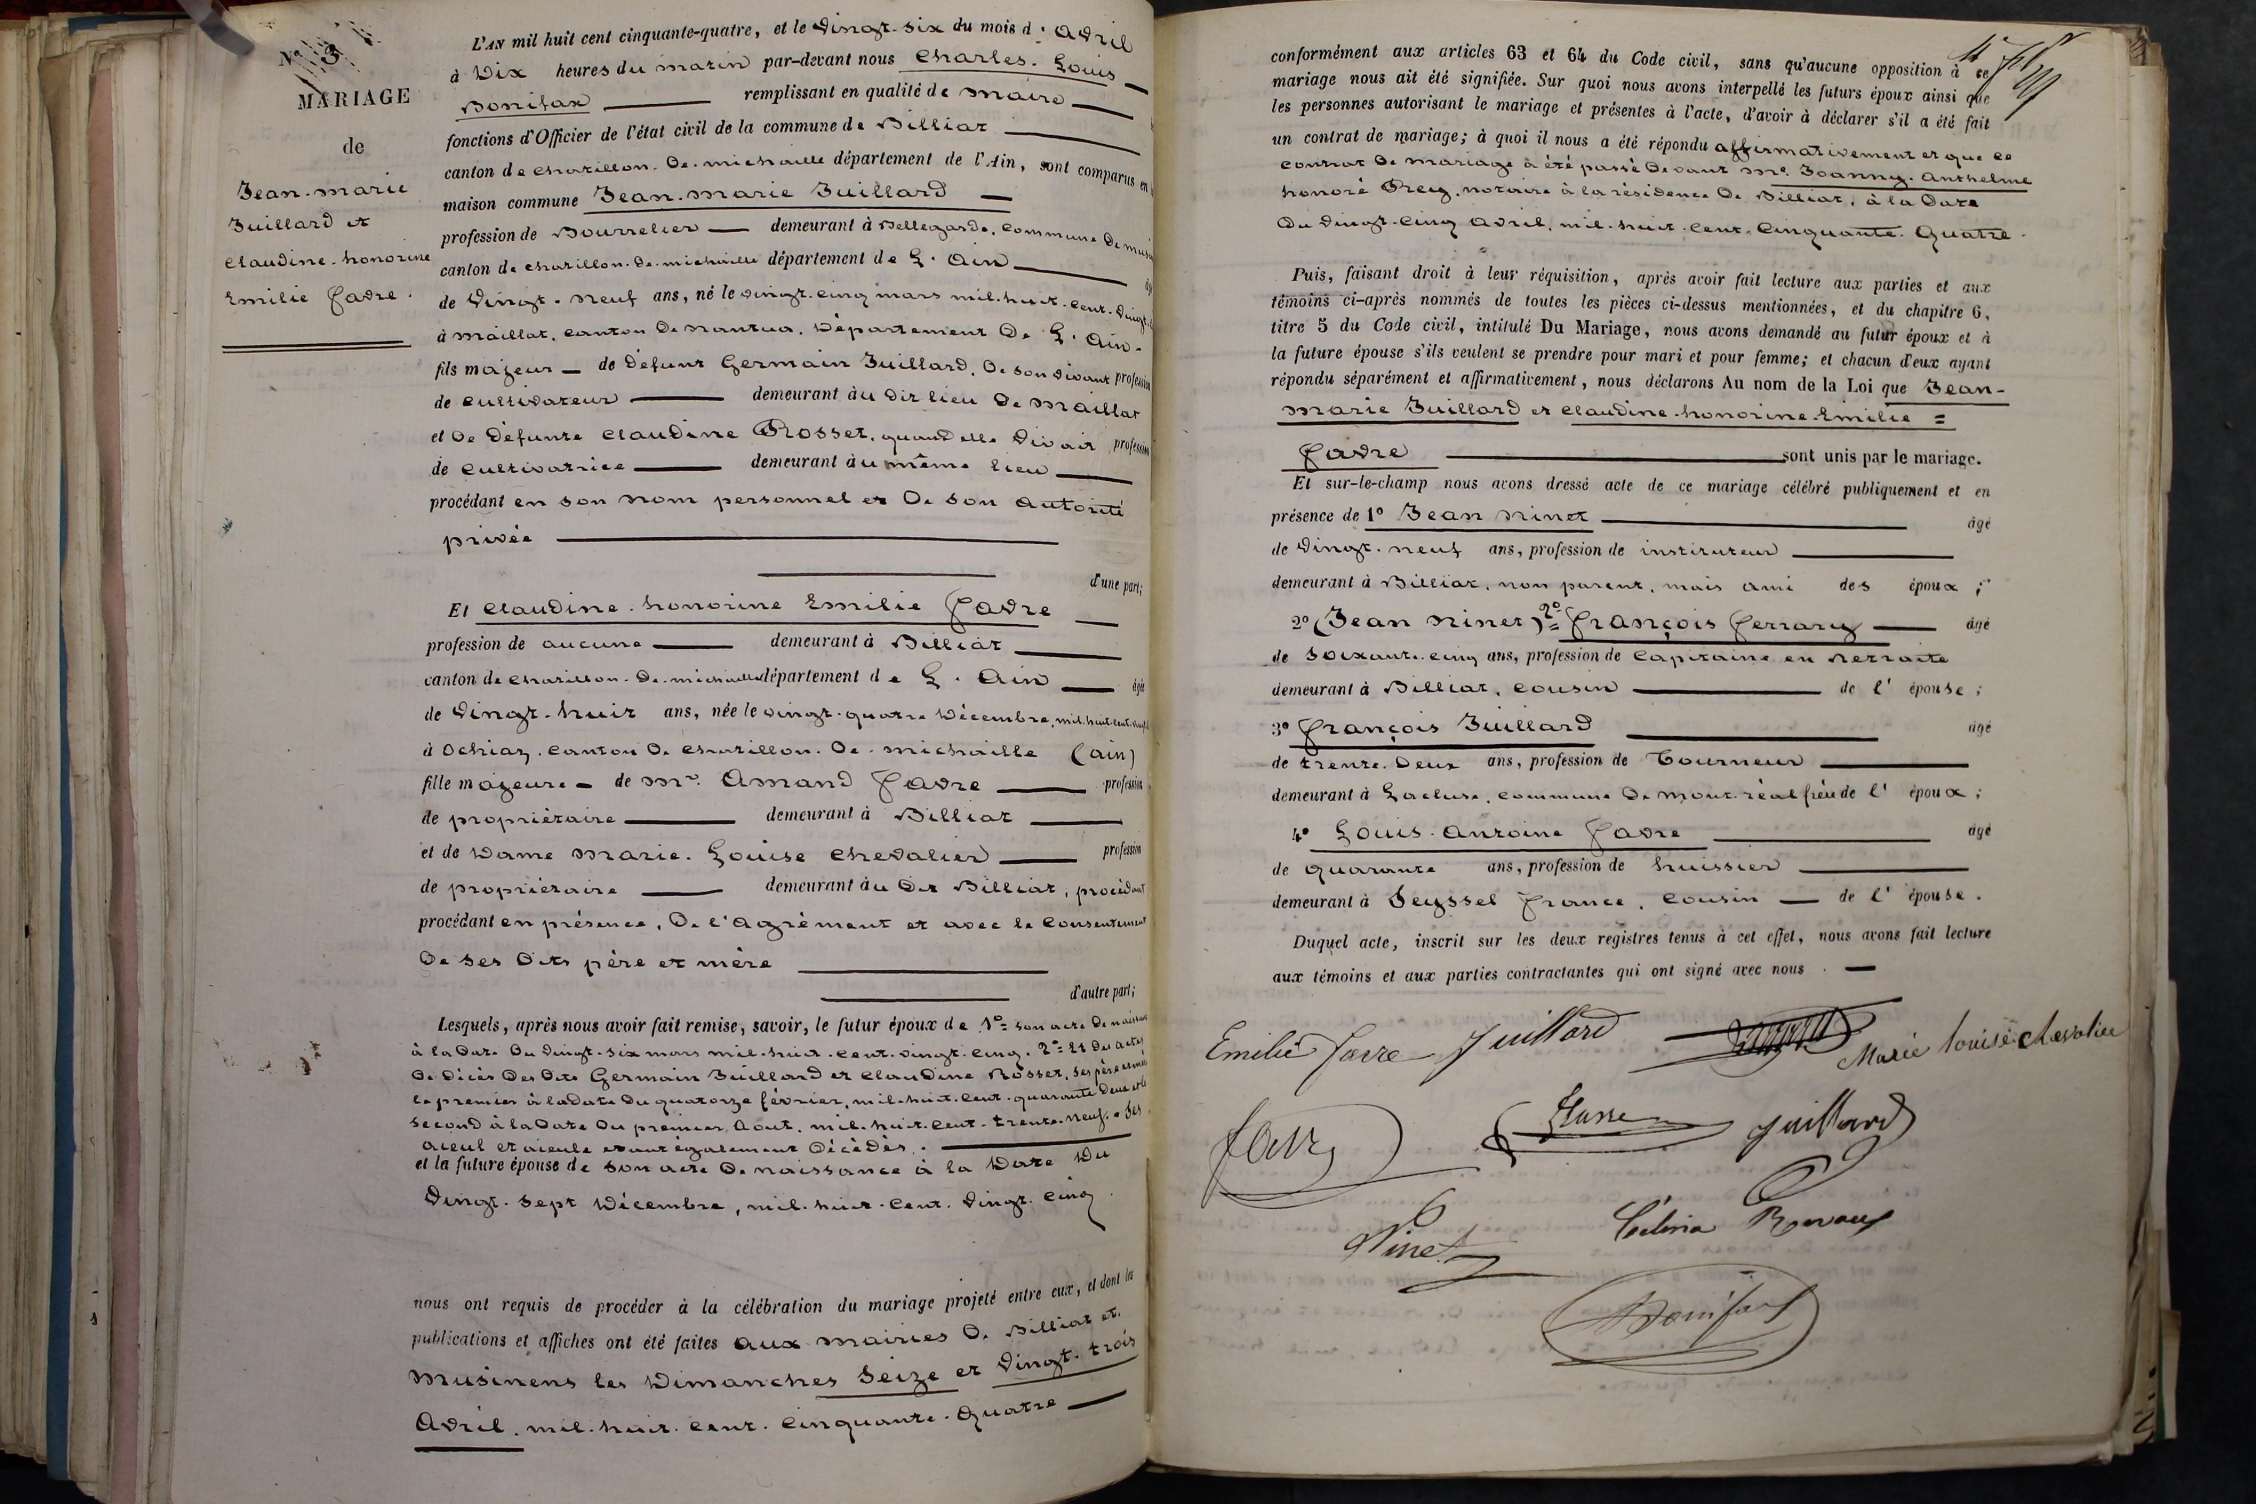 N° 3
MARIAGE
de
Jean-marie
Juillard et
Claudine-honorine
Emilie favre.
L'AN mil huit cent cinquante-quatre, et le vingt-six du mois d'avril
à Dix heures du matin par-devant nous Charles-Louis
Bonifax remplissant en qualité de maire
fonctions d'Officier de l'état civil de la commune de Billiat
canton de chatillon-de-michaille département de l'Ain, sont comparus en
maison commune Jean-marie Juillard
profession de Bourrelier demeurant à Bellegarde, commune de
canton de chatillon-de-michaille département de L'Ain
de vingt-neuf ans, né le vingt-cinq mars mil-huit-cent-vingt
à maillat, canton de nantua, Département de L'Ain
fils majeur de défunt Germain Juillard, de son vivant profession
de cultivateur demeurant au dit lieu de maillat
et de défunte claudine Rosset, quand elle vivait profession
de cultivatrice demeurant au même lieu
procédant en son nom personnel et de son autorité
privée
d'une part;
Et claudine-honorine Emilie favre
profession de aucune demeurant à Billiat
canton de chatillon-de-michaille département de L'Ain âgée
de vingt-huit ans, née le vingt-quatre Décembre, mil-huit-cent-vingt
à ochiaz, canton de chatillon-de-michaille (ain)
fille majeure de mr. Amand favre profession
de propriétaire demeurant à Billiat
et de Dame marie-Louise chevalier profession
de propriétaire demeurant au dit Billiat, procédant
procédant en présence, de l'agrément et avec le consentement
de ses dits père et mère
d'autre part;
Lesquels, après nous avoir fait remise, savoir, le futur époux de 1° son acte de naissance
à la date du vingt-six mars mil-huit-cent-vingt-cinq. 2° et des actes
de décès des dits Germain Juillard et claudine Rosset, ses père et mère
le premier à la date du quatorze février, mil-huit-cent-quarante deux et le
second à la date du premier Août, mil-huit-cent-trente-neuf. Ses
aïeul et aïeule étant également décédés.
et la future épouse de son acte de naissance à la Date Du
vingt-sept Décembre, mil-huit-cent-vingt-cinq.
nous ont requis de procéder à la célébration du mariage projeté entre eux, et dont les
publications et affiches ont été faites aux mairies de Billiat et
musinens les Dimanches Seize et vingt-trois
Avril, mil-huit-cent-cinquante-quatre
conformément aux articles 63 et 64 du Code civil, sans qu'aucune opposition à ce
mariage nous ait été signifiée. Sur quoi nous avons interpellé les futurs époux ainsi que
les personnes autorisant le mariage et présentes à l'acte, d'avoir à déclarer s'il a été fait
un contrat de mariage; à quoi il nous a été répondu affirmativement et que ce
contrat de mariage à été passé devant me. Joanny-Anthelme
honoré Recy, notaire à la résidence de Billiat, à la date
du vingt-cinq avril, mil-huit-cent-cinquante-quatre.
Puis, faisant droit à leur réquisition, après avoir fait lecture aux parties et aux
témoins ci-après nommés de toutes les pièces ci-dessus mentionnées, et du chapitre 6,
titre 5 du Code civil, intitulé Du Mariage, nous avons demandé au futur époux et à
la future épouse s'ils veulent se prendre pour mari et pour femme; et chacun d'eux ayant
répondu séparément et affirmativement, nous déclarons Au nom de la Loi que Jean-
marie Juillard et claudine-honorine-Emilie =
favre sont unis par le mariage.
Et sur-le-champ nous avons dressé acte de ce mariage célébré publiquement et en
présence de 1° Jean ninet âgé
de vingt-neuf ans, profession de instituteur
demeurant à Billiat, non parent, mais ami des époux;
2° (Jean ninet) 2° = françois ferrary âgé
de soixante-cinq ans, profession de capitaine en retraite
demeurant à Billiat, cousin de l'épouse;
3° françois Juillard âgé
de trente-deux ans, profession de Tourneur
demeurant à Lacluse, commune de mont-réal frère de l'époux;
4° Louis-antoine favre âgé
de quarante ans, profession de huissier
demeurant à Seyssel france, cousin de l'épouse.
Duquel acte, inscrit sur les deux registres tenus à cet effet, nous avons fait lecture
aux témoins et aux parties contractantes qui ont signé avec nous.
Emilie favre Juillard Marie louise chevalier
favre Juillard
Ninet
Bonifax